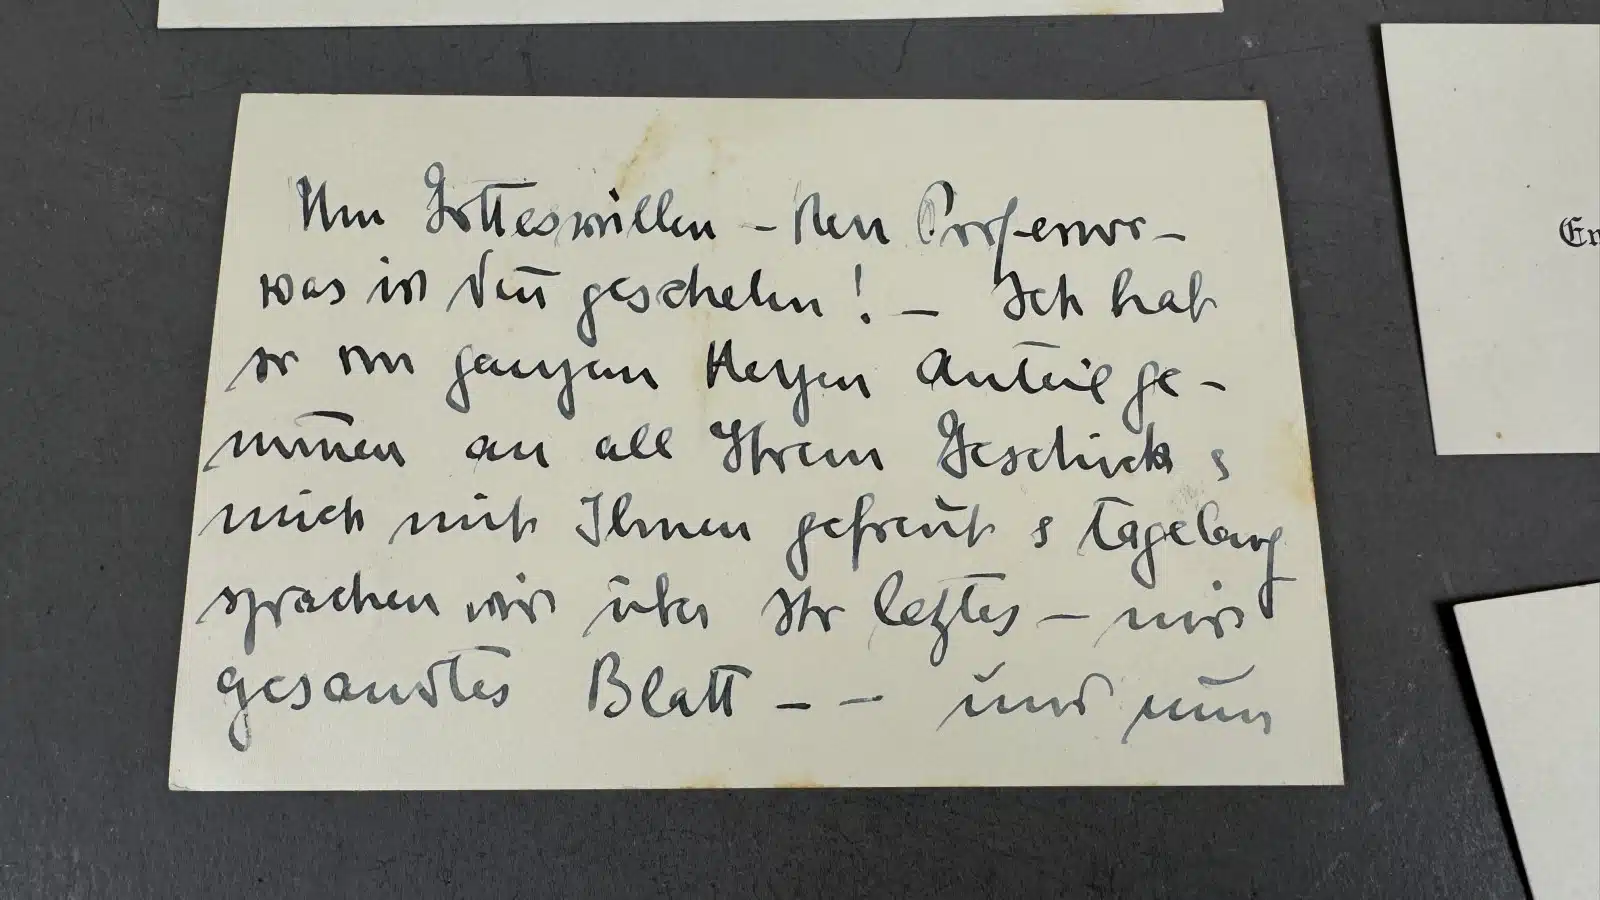 Um Gotteswillen – Herr Professor –
was ist denn geschehen! – Ich hab
so von ganzem Herzen Anteil ge-
nommen an all Ihrem Geschick &
mich mit Ihnen gefreut & tagelang
sprachen wir über Ihr letztes – mir
gesandtes Blatt – – und nun